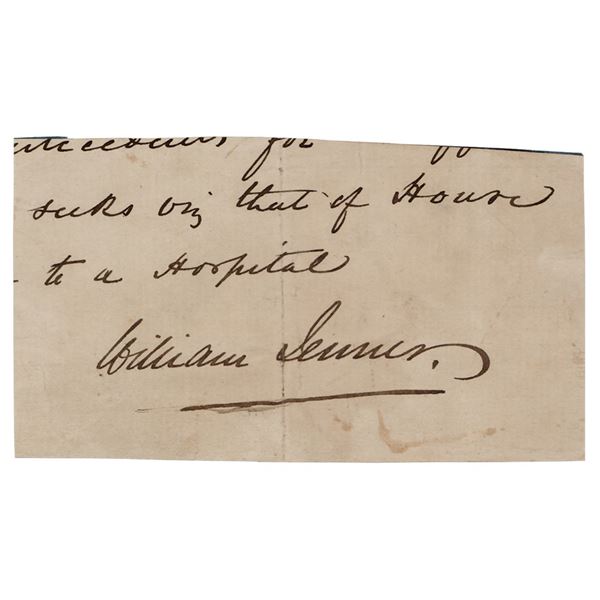 for
seeks viz that of House
- to a Hospital
William Jenner.